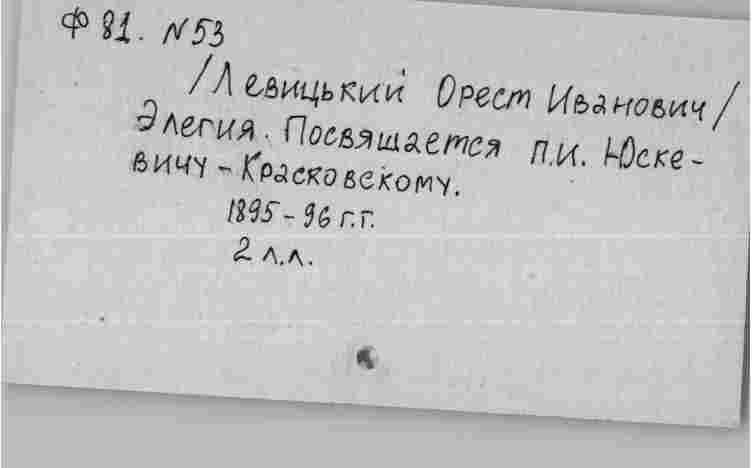 Ф 81. N 53
/Левицький Орест Иванович/
Элегия. Посвящается П.И. Юске-
вичу - Красковскому.
1895 - 96 г.г.
2 л.л.